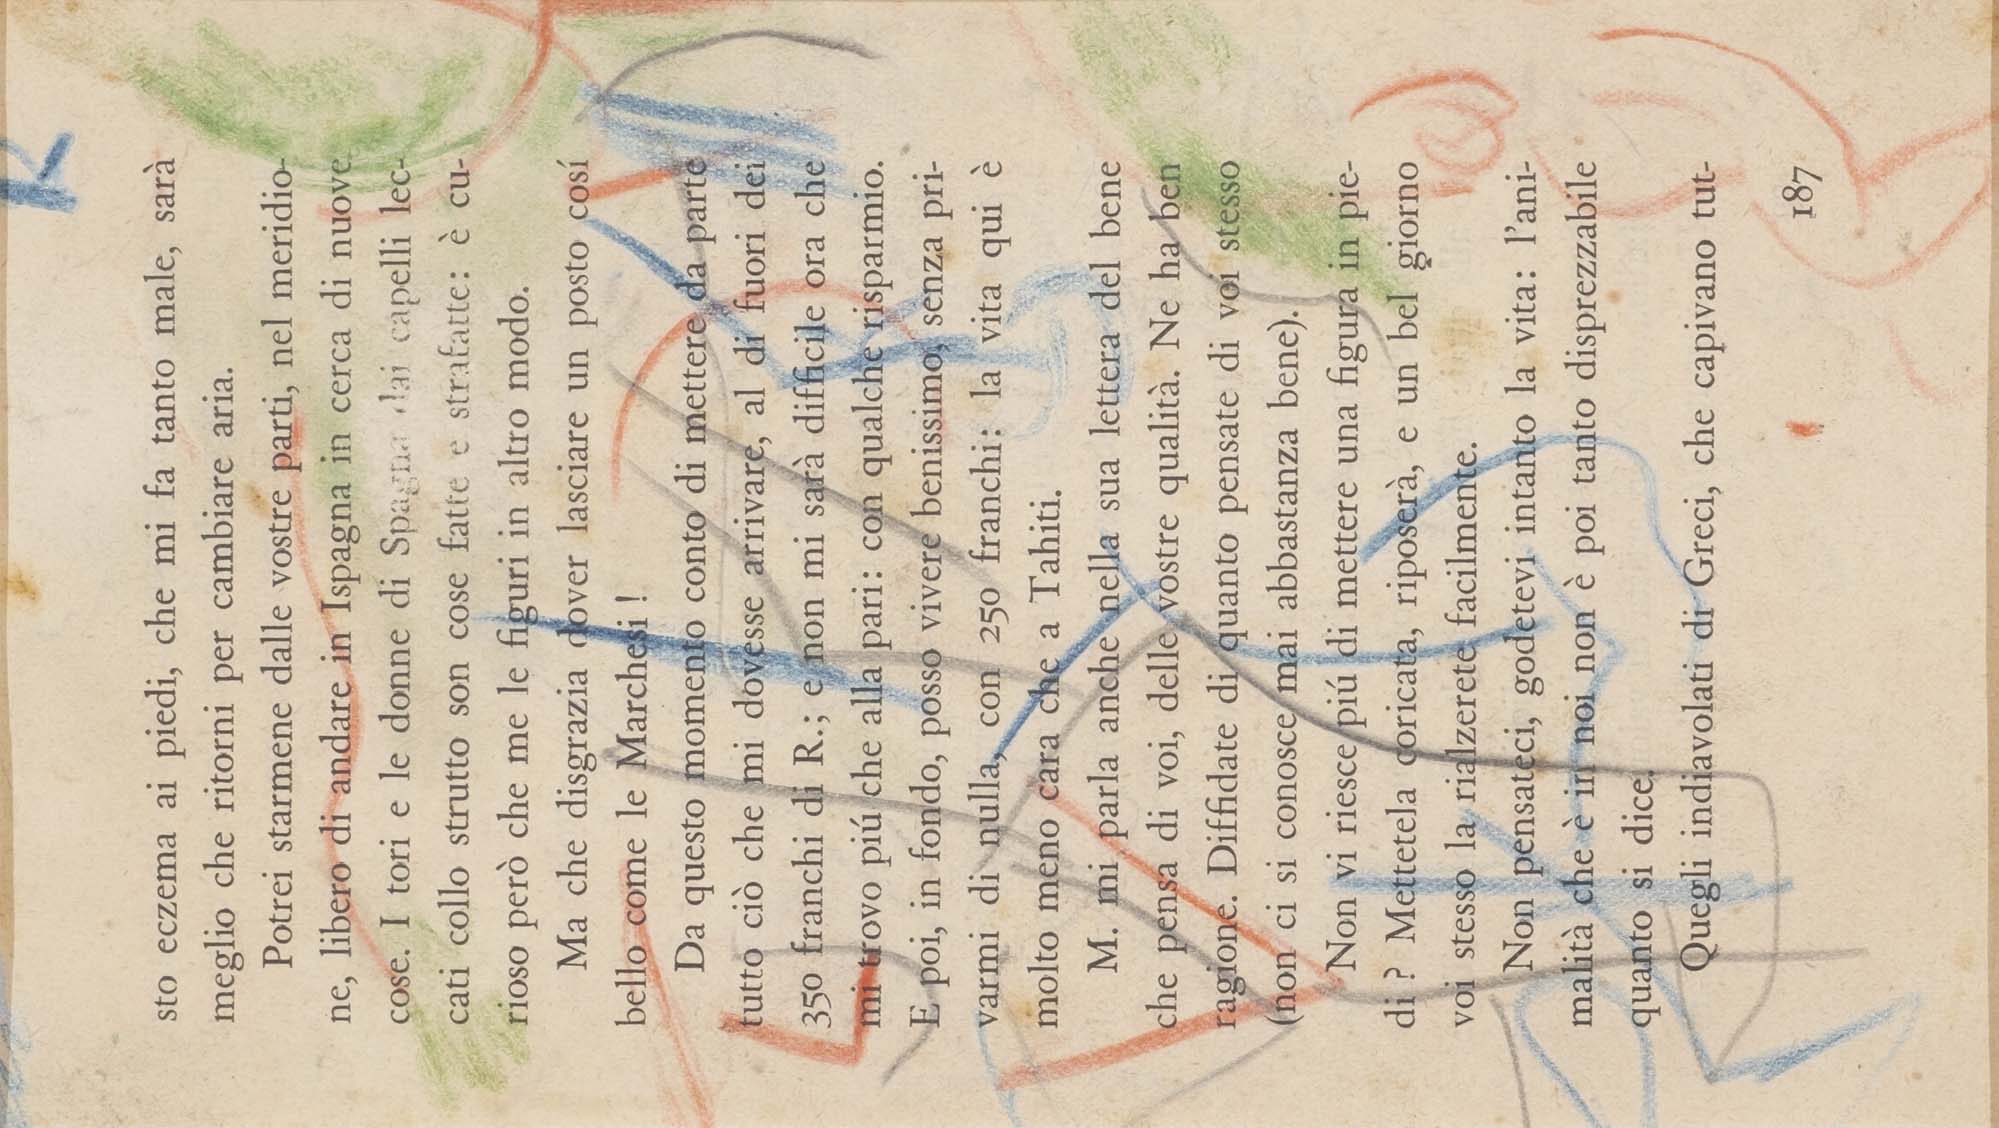 sto eczema ai piedi, che mi fa tanto male, sarà
meglio che ritorni per cambiare aria.
Potrei starmene dalle vostre parti, nel meridio-
ne, libero di andare in Ispagna in cerca di nuove
cose. I tori e le donne di Spagna dai capelli lec-
cati collo strutto son cose fatte e strafatte: è cu-
rioso però che me le figuri in altro modo.
Ma che disgrazia dover lasciare un posto cosí
bello come le Marchesi !
Da questo momento conto di mettere da parte
tutto ciò che mi dovesse arrivare, al di fuori dei
350 franchi di R.; e non mi sarà difficile ora che
mi trovo piú che alla pari: con qualche risparmio.
E poi, in fondo, posso vivere benissimo, senza pri-
varmi di nulla, con 250 franchi: la vita qui è
molto meno cara che a Tahiti.
M. mi parla anche nella sua lettera del bene
che pensa di voi, delle vostre qualità. Ne ha ben
ragione. Diffidate di quanto pensate di voi stesso
(non ci si conosce mai abbastanza bene).
Non vi riesce piú di mettere una figura in pie-
di ? Mettetela coricata, riposerà, e un bel giorno
voi stesso la rialzerete facilmente.
Non pensateci, godetevi intanto la vita: l'ani-
malità che è in noi non è poi tanto disprezzabile
quanto si dice.
Quegli indiavolati di Greci, che capivano tut-
187